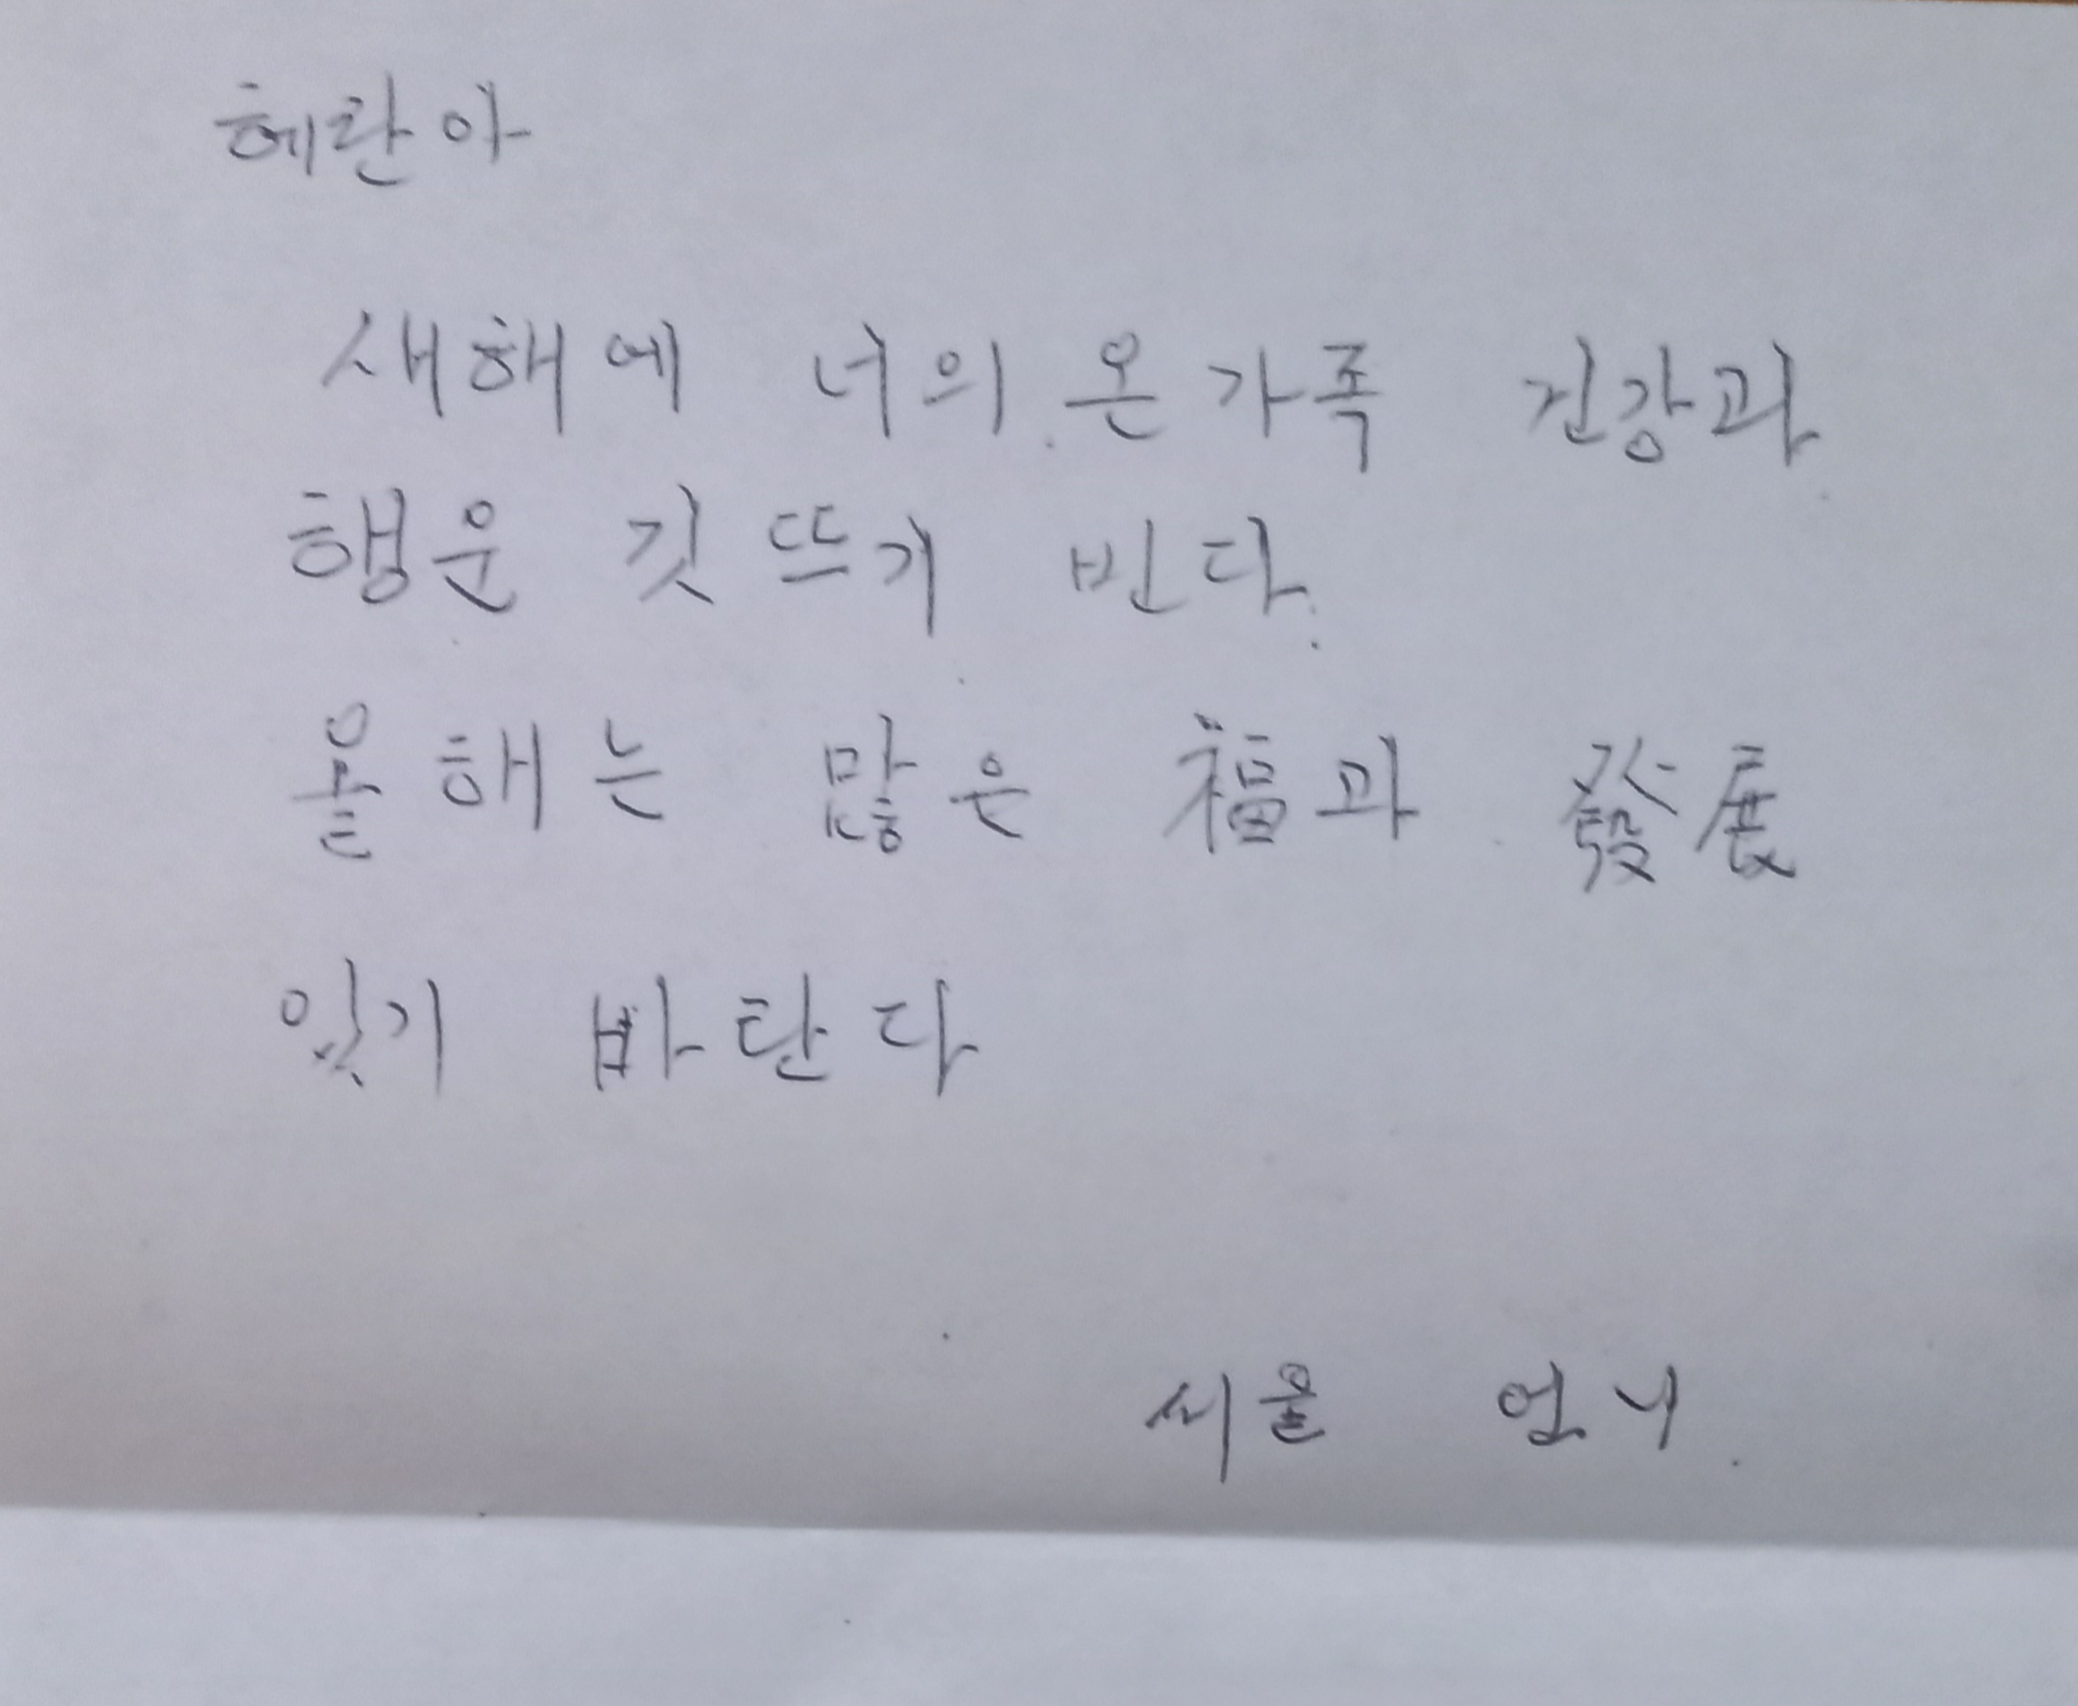 혜란아
새해에 너의 온가족 건강과
행운 깃뜨기 빈다.
올해는 많은 福과 發展
있기 바란다
서울 언니.